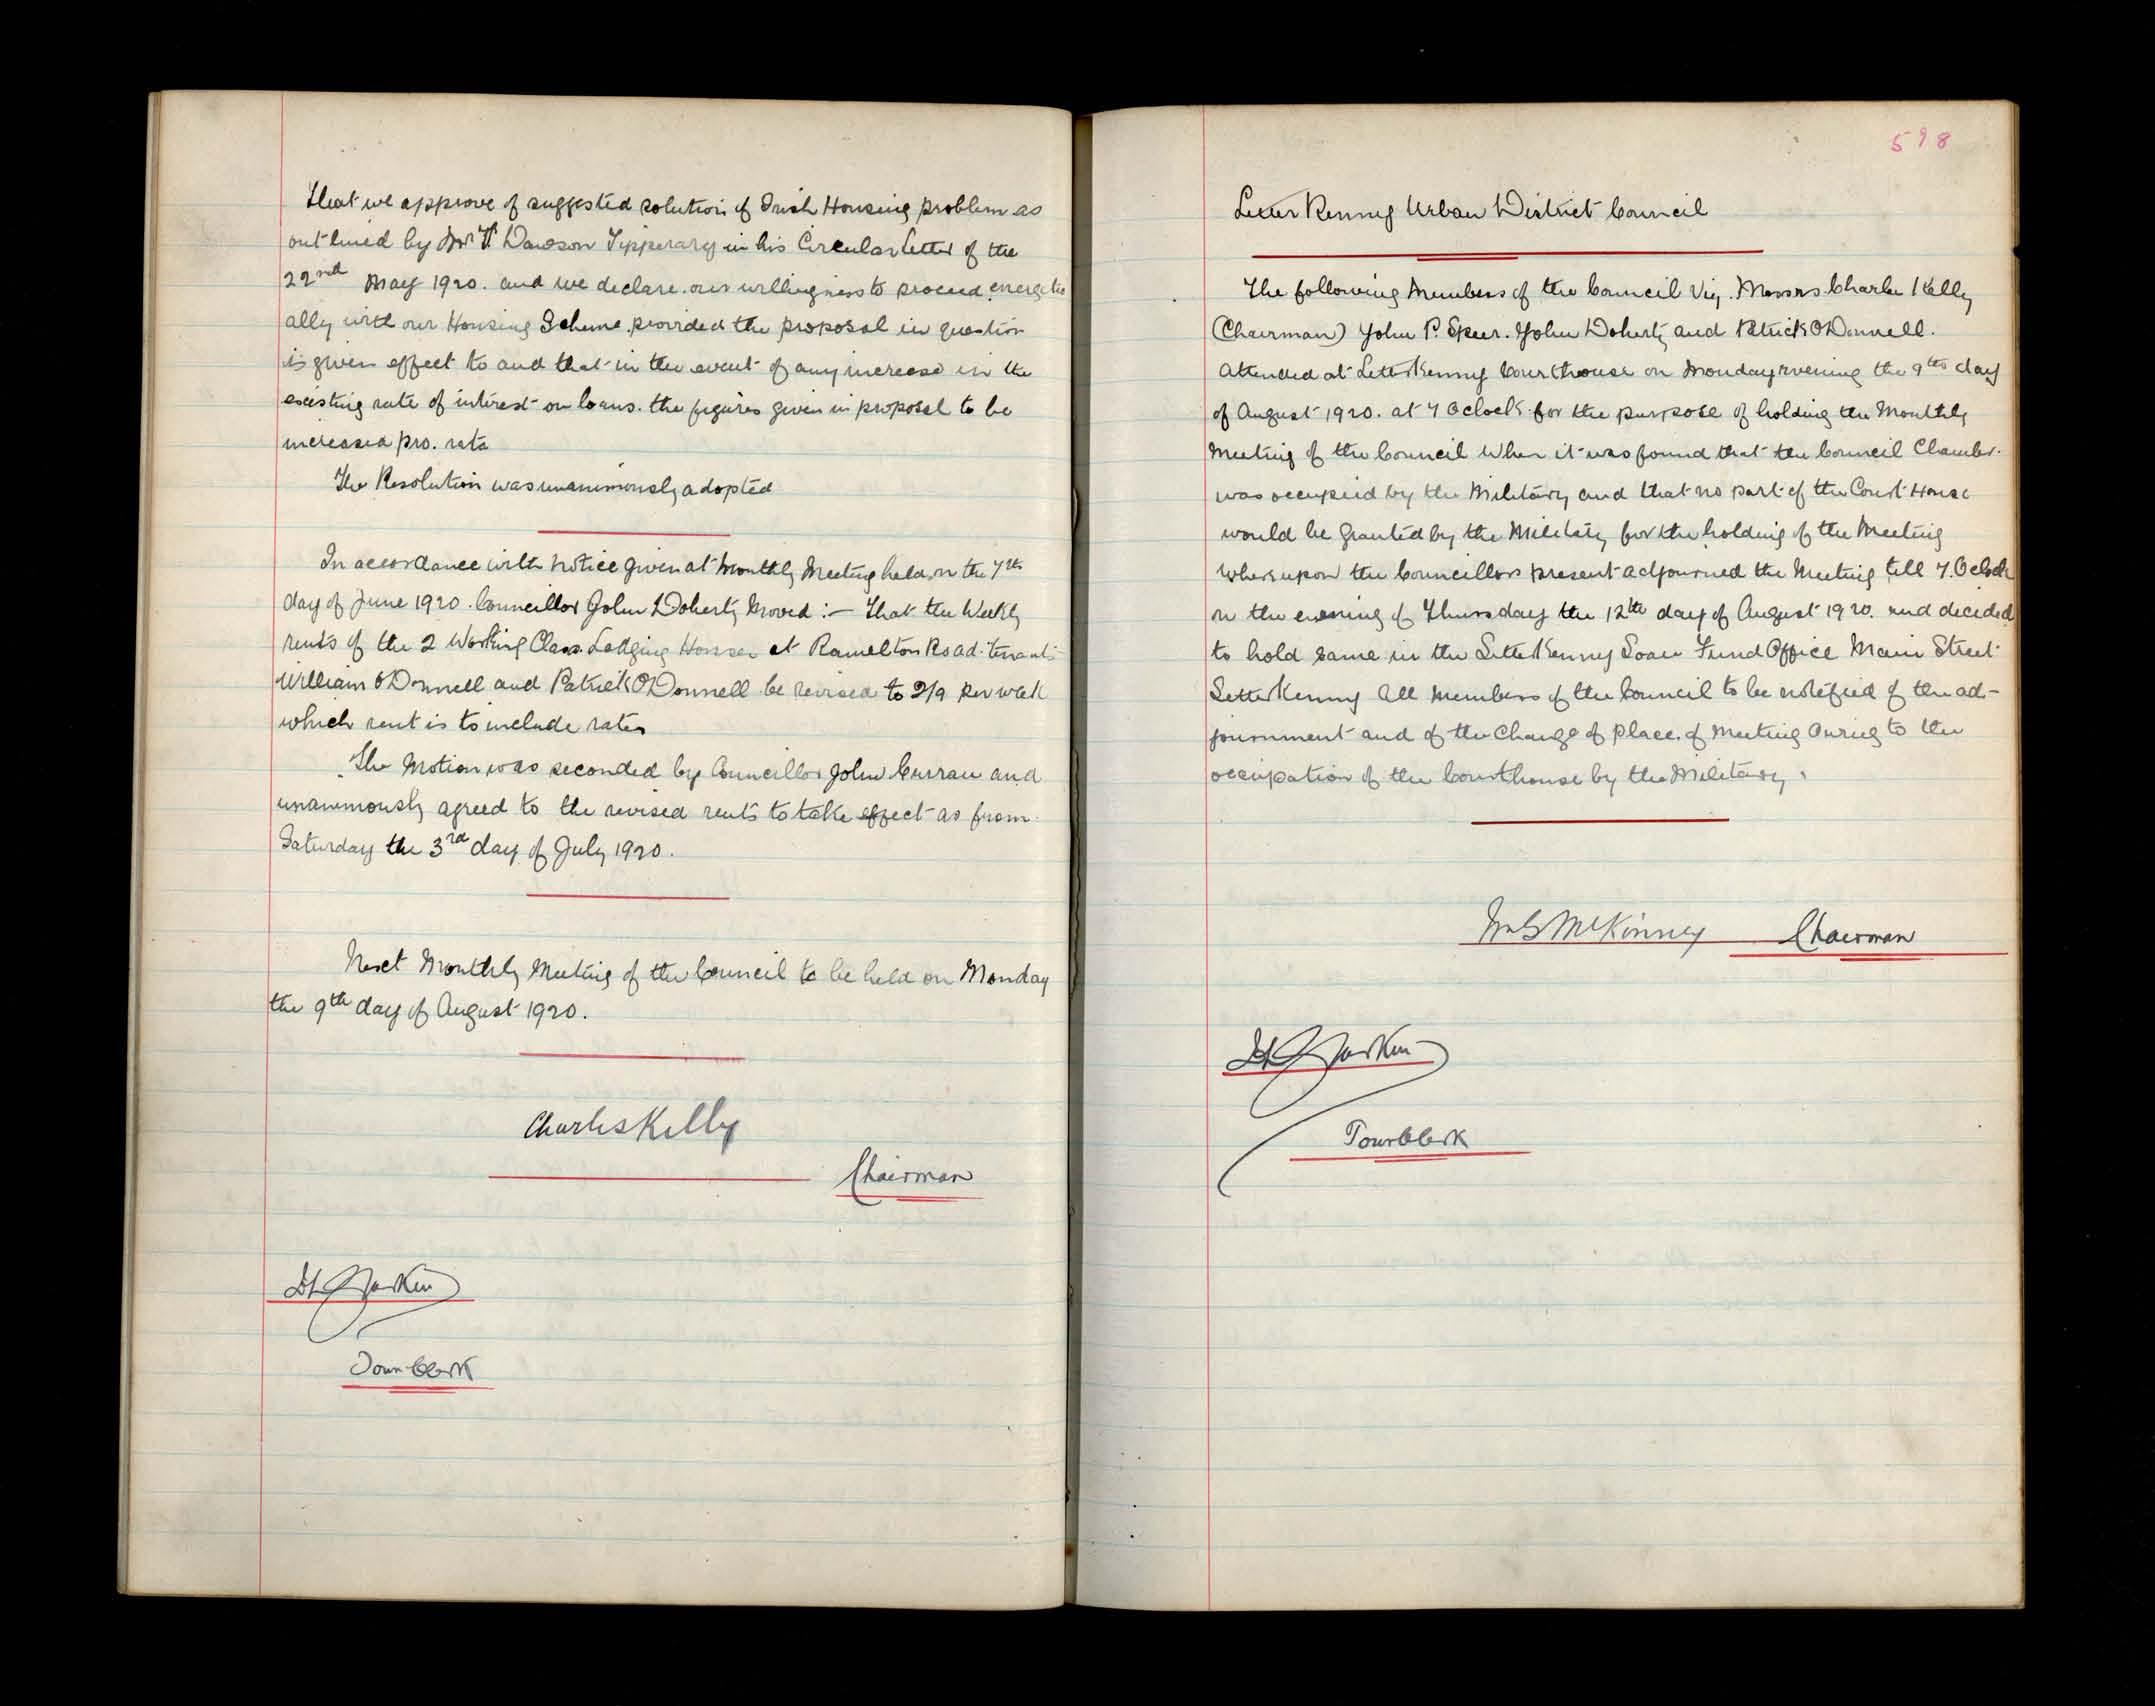 That we approve of suggested solution of Irish Housing problem as
outlined by Mr T Dawson Tipperary in his Circular letter of the
22nd May 1920. and we declare our willingness to proceed energetic
ally with our Housing Scheme provided the proposal in question
is given effect to and that in the event of any increase in the
existing rate of interest on loans. the figures given in proposal to be
increased pro. rata
The Resolution was unanimously adopted
In accordance with notice given at Monthly Meeting held on the 7th
day of June 1920. Councillor John Doherty Moved :- That the Weekly
rents of the 2 Working Class Lodging Houses at Ramelton Road tenants
William O'Donnell and Patrick O'Donnell be revised to 2/9 per week
which rent is to include rates
The Motion was seconded by Councillor John Curran and
unanimously agreed to the revised rents to take effect as from
Saturday the 3rd day of July 1920.
Next Monthly Meeting of the Council to be held on Monday
the 9th day of August 1920.
Charles Kelly
Chairman
Larkin
Town Clerk
598
LetterKenny Urban District Council
The following Members of the Council Viz. Messrs Charles Kelly
(Chairman) John P. Speer. John Doherty and Patrick O'Donnell.
attended at LetterKenny Courthouse on Monday evening the 9th day
of August 1920. at 7 Oclock for the purpose of holding the Monthly
Meeting of the Council When it was found that the Council Chamber.
was occupied by the Military and that no part of the Court House
would be granted by the Military for the holding of the Meeting
whereupon the Councillors present adjourned the Meeting till 7. Oclock
on the evening of Thursday the 12th day of August 1920. and decided
to hold same in the LetterKenny Loan Fund Office Main Street
LetterKenny All members of the Council to be notified of the ad-
journment and of the Change of Place of Meeting Owing to the
occupation of the Courthouse by the Military.
McKinney Chairman
Larkin
Town Clerk